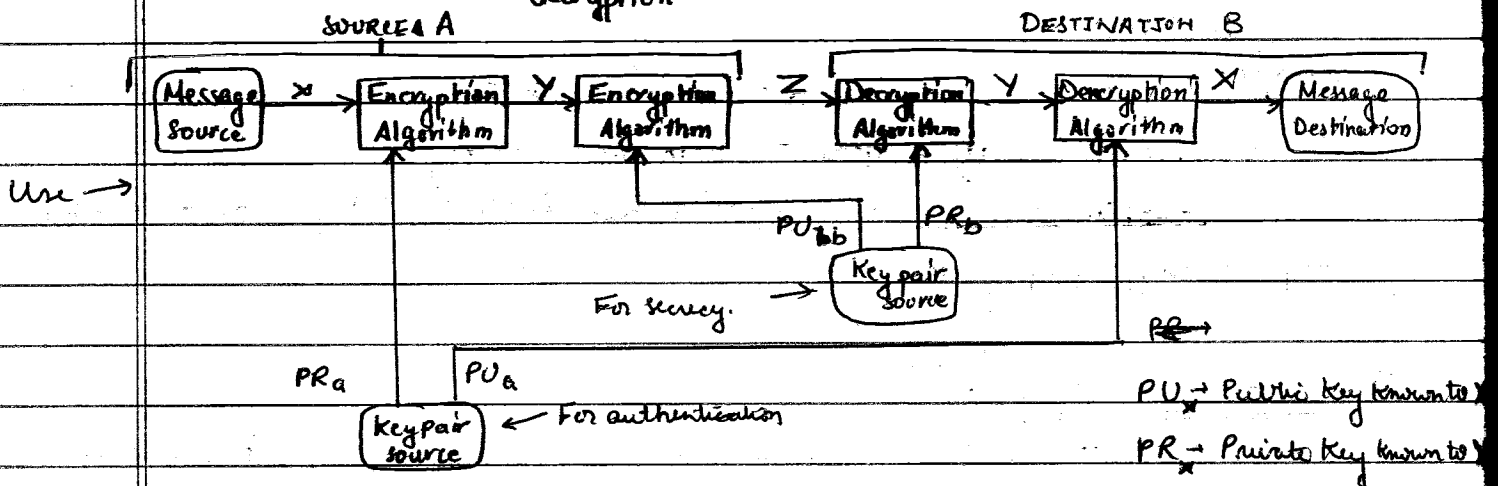 Decryption
SOURCE A
DESTINATION B
Message
Source
X
Encryption
Algorithm
Y
Encryption
Algorithm
Z
Decryption
Algorithm
Y
Dencryption
Algorithm
X
Message
Destination
Use →
PU b
PR b
Key pair
source
For secrecy. →
PR a
PU a
Key pair
source
← For authentication
PU x → Public Key known to
PR x → Private Key known to